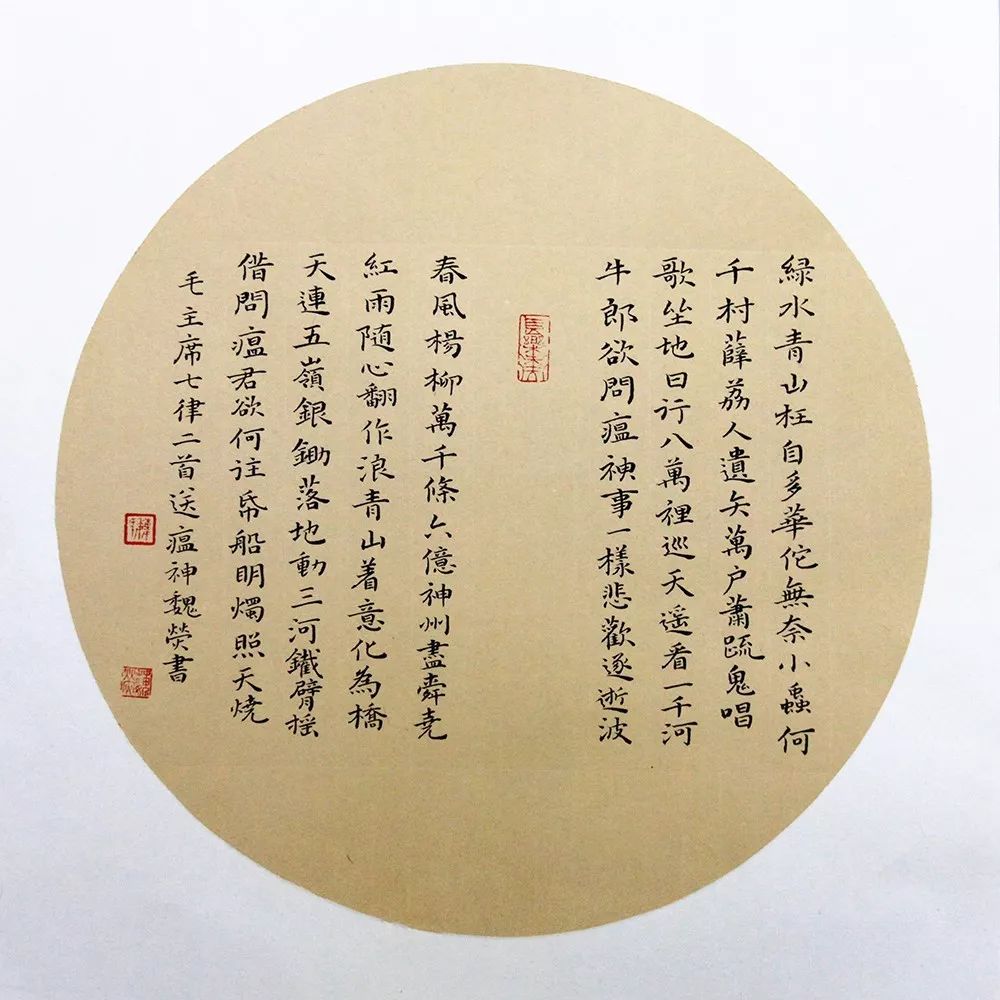 緑水青山枉自多華佗無奈小蟲何
千村薜荔人遺矢萬户蕭疏鬼唱
歌坐地日行八萬裡巡天遥看一千河
牛郎欲問瘟神事一樣悲歡逐逝波
春風楊柳萬千條六億神州盡舜堯
紅雨随心翻作浪青山着意化為橋
天連五嶺銀鋤落地動三河鐵臂摇
借問瘟君欲何往帋船明燭照天燒
毛主席七律二首送瘟神魏熒書